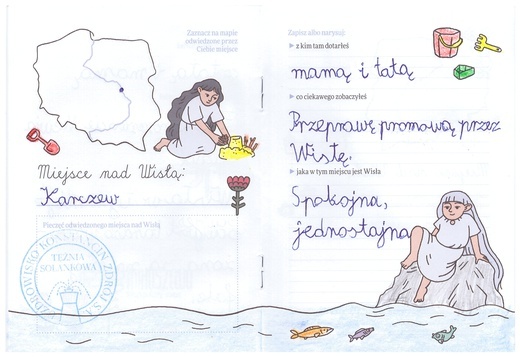 Zaznacz na mapie
odwiedzone przez
Ciebie miejsce
Miejsce nad Wisłą:
Karczew
Pieczęć odwiedzonego miejsca nad Wisłą
UZDROWISKO KONSTANCIN-ZDRÓJ S.A.
TĘŻNIA
SOLANKOWA
Zapisz albo narysuj:
z kim tam dotarłeś
mamą i tatą
co ciekawego zobaczyłeś
Przeprawę promową przez
Wisłę.
jaka w tym miejscu jest Wisła
Spokojna,
jednostajna